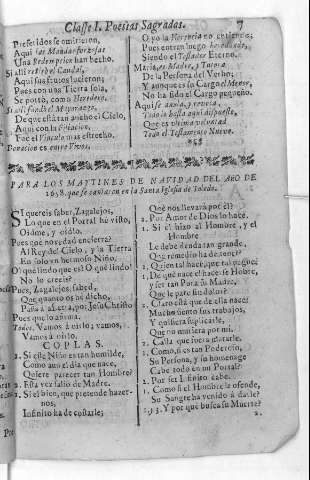 Classe I. Poesias Sagradas. 7
Preferidos se omitieron,
Aqui las Mandas forzosas
Una Redempcion han hecho.
Si alli retirò el Caudal,
Aqui sus frutos lucieron;
Pues con una Tierra sola,
Se portò, como Heredero.
Si alli fundò el Mayorazgo,
De que està tan ancho el Cielo,
Aqui con la
Fue el Vinculo mas estrecho.
Donacion es entre Vivos,
O yo la Herencia no entiendo;
Pues entran luego heredando,
Siendo el Testador Eterno.
Maria, es Madre, y Tutora
De la Persona del Verbo;
Y aunque es su Cargo el Menor,
No la fido el Cargo pequeño.
Aqui se anula, y revoca
Todo lo hasta aqui dispuesto,
Que es ultima voluntad
Todo el Testamento Nuevo.
PARA LOS MAYTINES DE NAVIDAD DEL AÑO DE
1658. que se cantaron en la Santa Iglesia de Toledo.
SI quereis saber, Zagalejos,
Lo que en el Portal he visto,
Oidme, y oidlo.
Pues què novedad encierra?
Al Rey del Cielo, y la Tierra
En solo un hermoso Niño.
O! què lindo que es! O què lindo!
No lo creeis?
Pues, Zagalejos, sabed,
Que quanto os he dicho,
Passa assi, por Jesu Christo
Pues que lo anima.
Todos. Vamos à vislo; vamos,
Vamos à vislo.
COPLAS.
1. Si esse Niño es tan humilde,
Como aun el dia que nace,
Quiere parecer tan Hombre?
2. Esta vez salio de Madre.
1. Si el bien, que pretende hazernos,
Infinito ha de costarle;
Què nos llevarà por èl?
2. Por Amor de Dios lo hace.
1. Si el hizo al Hombre, y el
Hombre
Le debe deuda tan grande,
Què remedio ha de tener?
2. Quien tal hace, que tal pague.
1. De què nace el hacerse Hõbre,
y ser tan Pura su Madre,
Que le pare sin dolor?
2. Claro està que de ella nace:
Mucho siento sus trabajos,
Y quisiera suplicarle,
Que no muriera por mi.
2. Calla que serà matarle.
1. Como, si es tan Poderoso,
Su Persona, y su homenage
Cabe todo en un Portal?
2. Por ser Infinito cabe.
1. Como si el Hombre le ofende,
Su Sangre ha venido à darle?
1. Y por què busca su Muerte?
2.